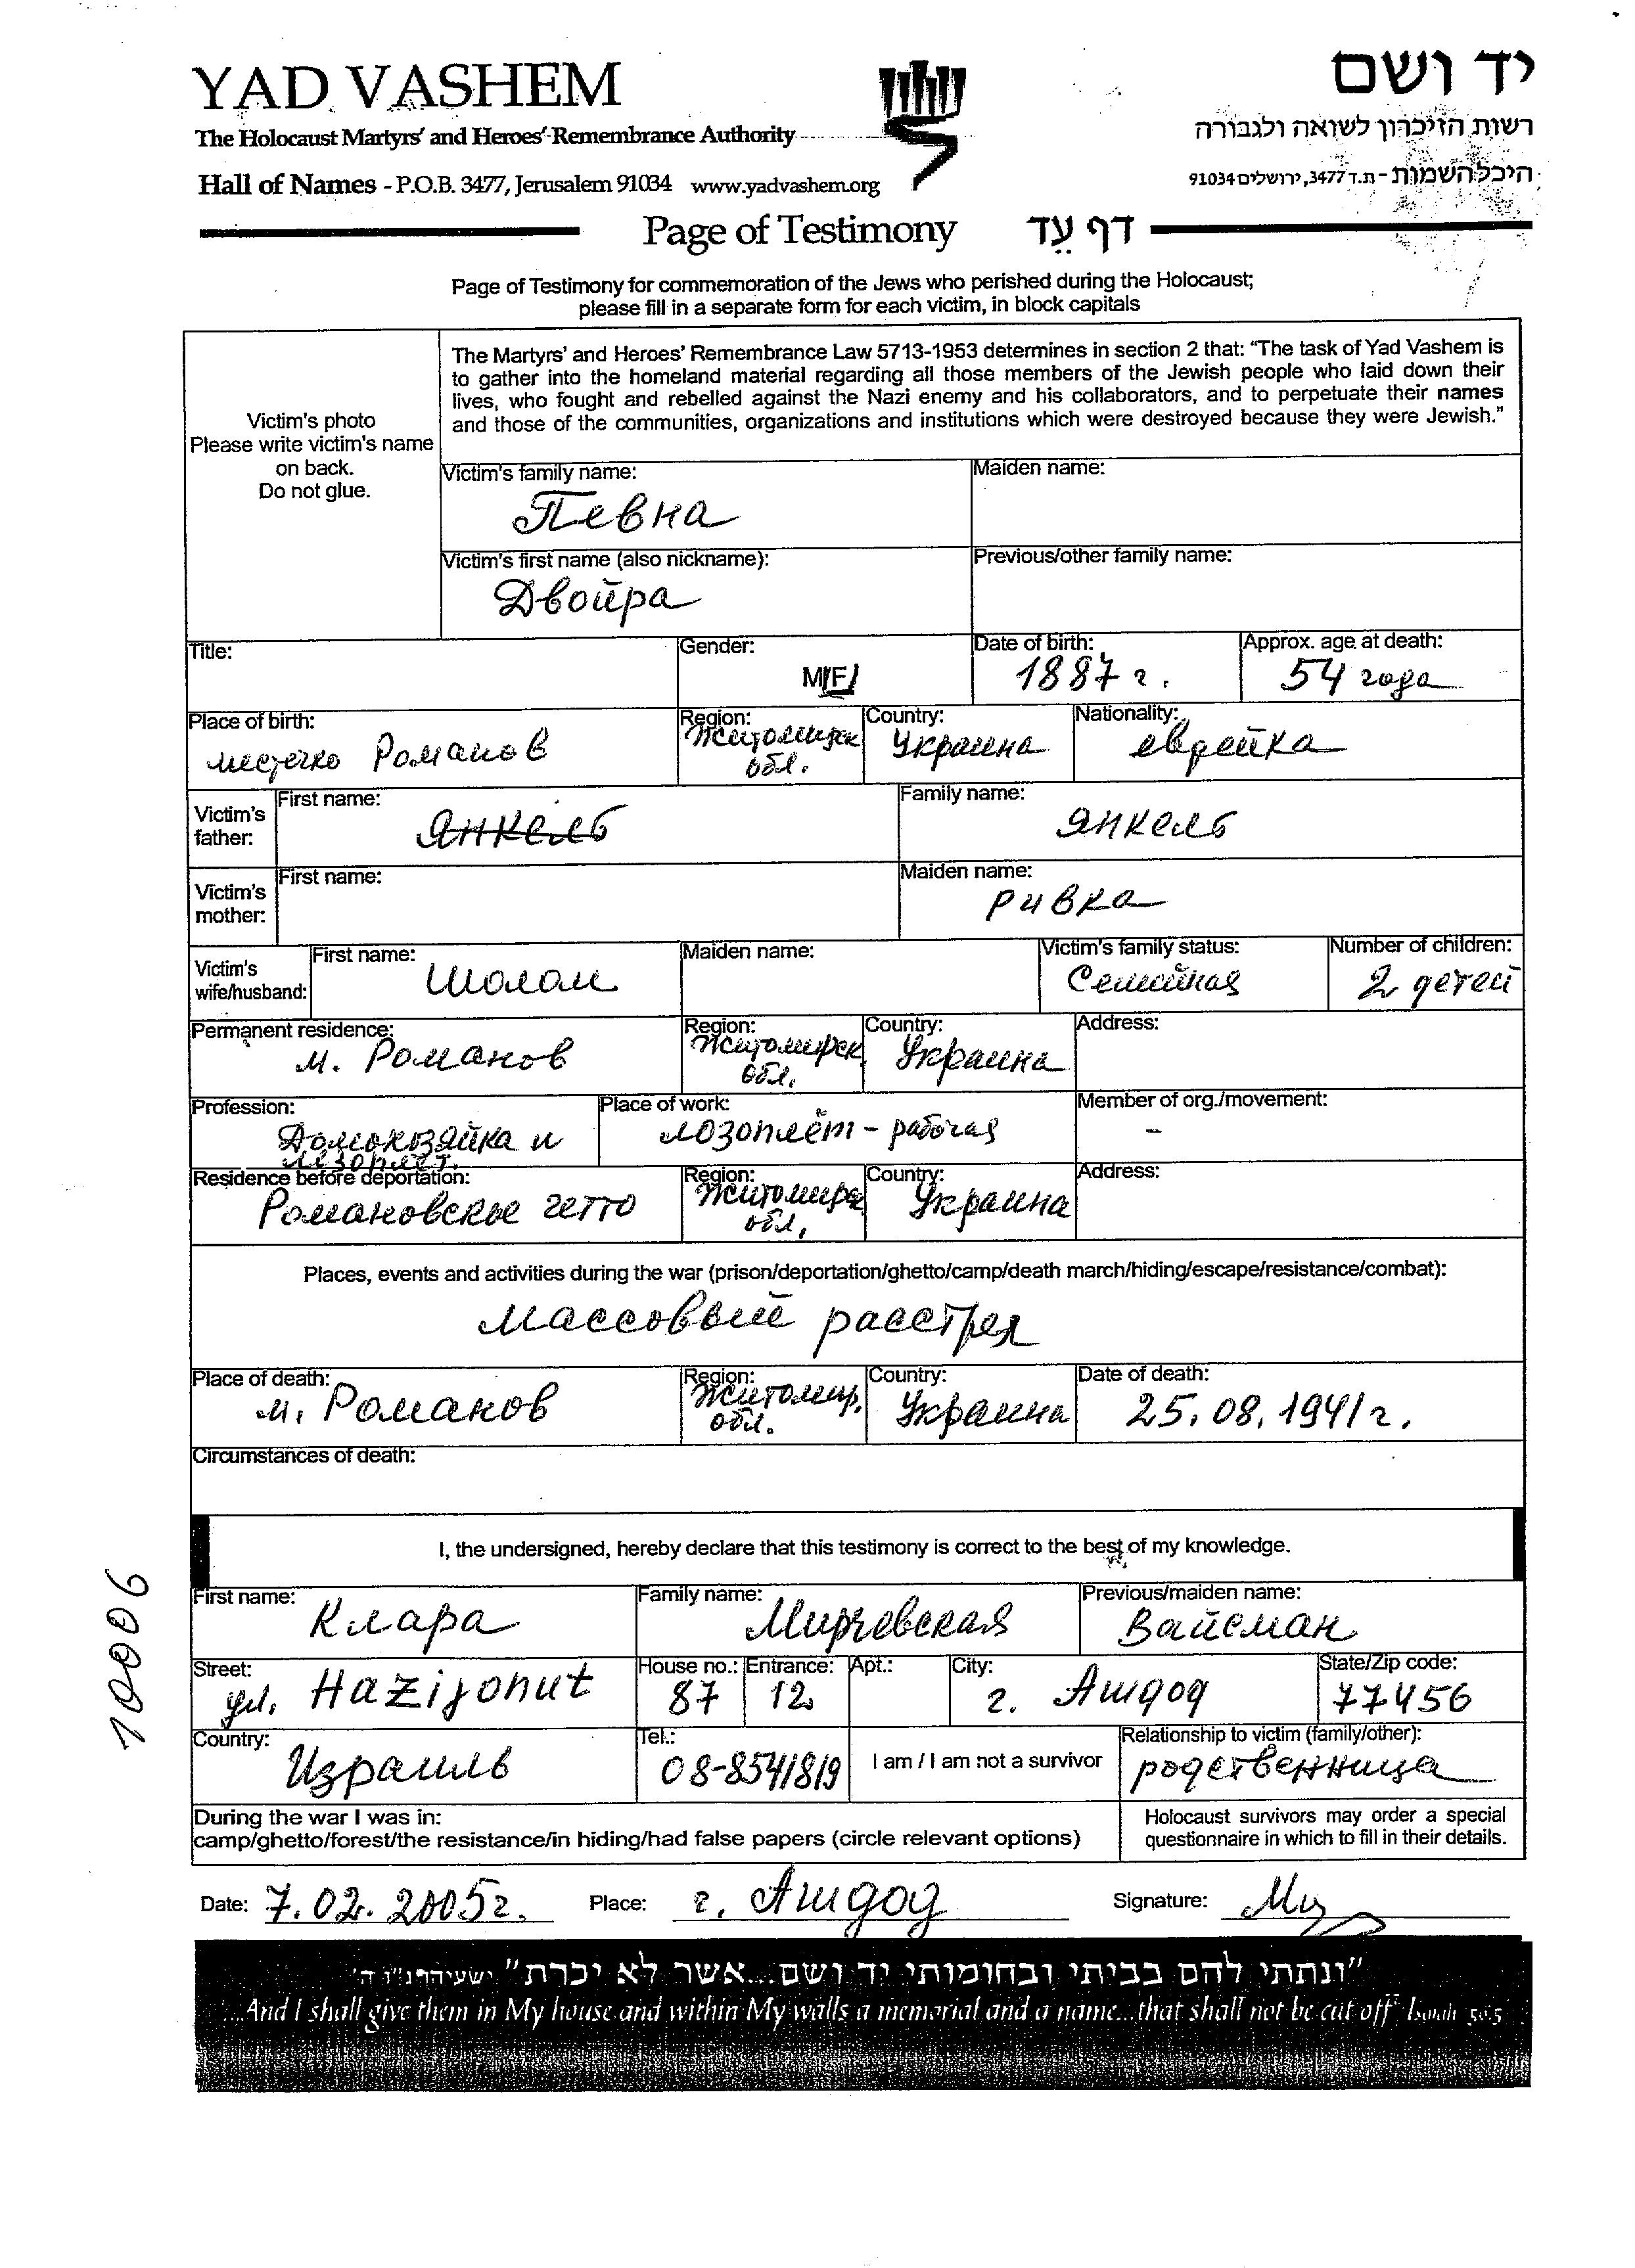 YAD VASHEM
The Holocaust Martyrs' and Heroes' Remembrance Authority
Hall of Names - P.O.B. 3477, Jerusalem 91034 www.yadvashem.org
יד ושם
רשות הזיכרון לשואה ולגבורה
היכל השמות - ת.ד 3477, ירושלים 91034
Page of Testimony דף עֵד
Page of Testimony for commemoration of the Jews who perished during the Holocaust;
please fill in a separate form for each victim, in block capitals
Victim's photo
Please write victim's name
on back.
Do not glue.
The Martyrs' and Heroes' Remembrance Law 5713-1953 determines in section 2 that: "The task of Yad Vashem is
to gather into the homeland material regarding all those members of the Jewish people who laid down their
lives, who fought and rebelled against the Nazi enemy and his collaborators, and to perpetuate their names
and those of the communities, organizations and institutions which were destroyed because they were Jewish."
Victim's family name: Maiden name:
Певна
Victim's first name (also nickname): Previous/other family name:
Двойра
Title: Gender: Date of birth: Approx. age at death:
M/F/ 1887 г. 54 года
Place of birth: Region: Country: Nationality:
местечко Романов Житомирск Украина еврейка
обл.
Victim's father: First name: Family name:
Янкель Янкель
Victim's mother: First name: Maiden name:
Ривка
Victim's wife/husband: First name: Maiden name: Victim's family status: Number of children:
Шолом Семейная 2 детей
Permanent residence: Region: Country: Address:
м. Романов Житомирск. Украина
обл.
Profession: Place of work: Member of org./movement:
Домохозяйка и лозоплёт - рабочая –
лозоплет.
Residence before deportation: Region: Country: Address:
Романовское гетто Житомирск Украина
обл.
Places, events and activities during the war (prison/deportation/ghetto/camp/death march/hiding/escape/resistance/combat):
Массовый расстрел
Place of death: Region: Country: Date of death:
м. Романов Житомир. Украина 25.08.1941 г.
обл.
Circumstances of death:
I, the undersigned, hereby declare that this testimony is correct to the best of my knowledge.
First name: Family name: Previous/maiden name:
Клара Вайсман
Street: House no.: Entrance: Apt.: City: State/Zip code:
ул. Hazijonut 87 12 г. Ашдод 77456
Country: Tel.: I am / I am not a survivor Relationship to victim (family/other):
Израиль 08-8541819 родственница
During the war I was in:
camp/ghetto/forest/the resistance/in hiding/had false papers (circle relevant options)
Holocaust survivors may order a special
questionnaire in which to fill in their details.
Date: 7.02.2005г. Place: г. Ашдод Signature:
"ונתתי להם בביתי ובחומותי יד ושם...אשר לא יכרת" ישעיהו נ"ו ה'
...And I shall give them in My house and within My walls a memorial and a name...that shall not be cut off" Isaiah 56:5
10006